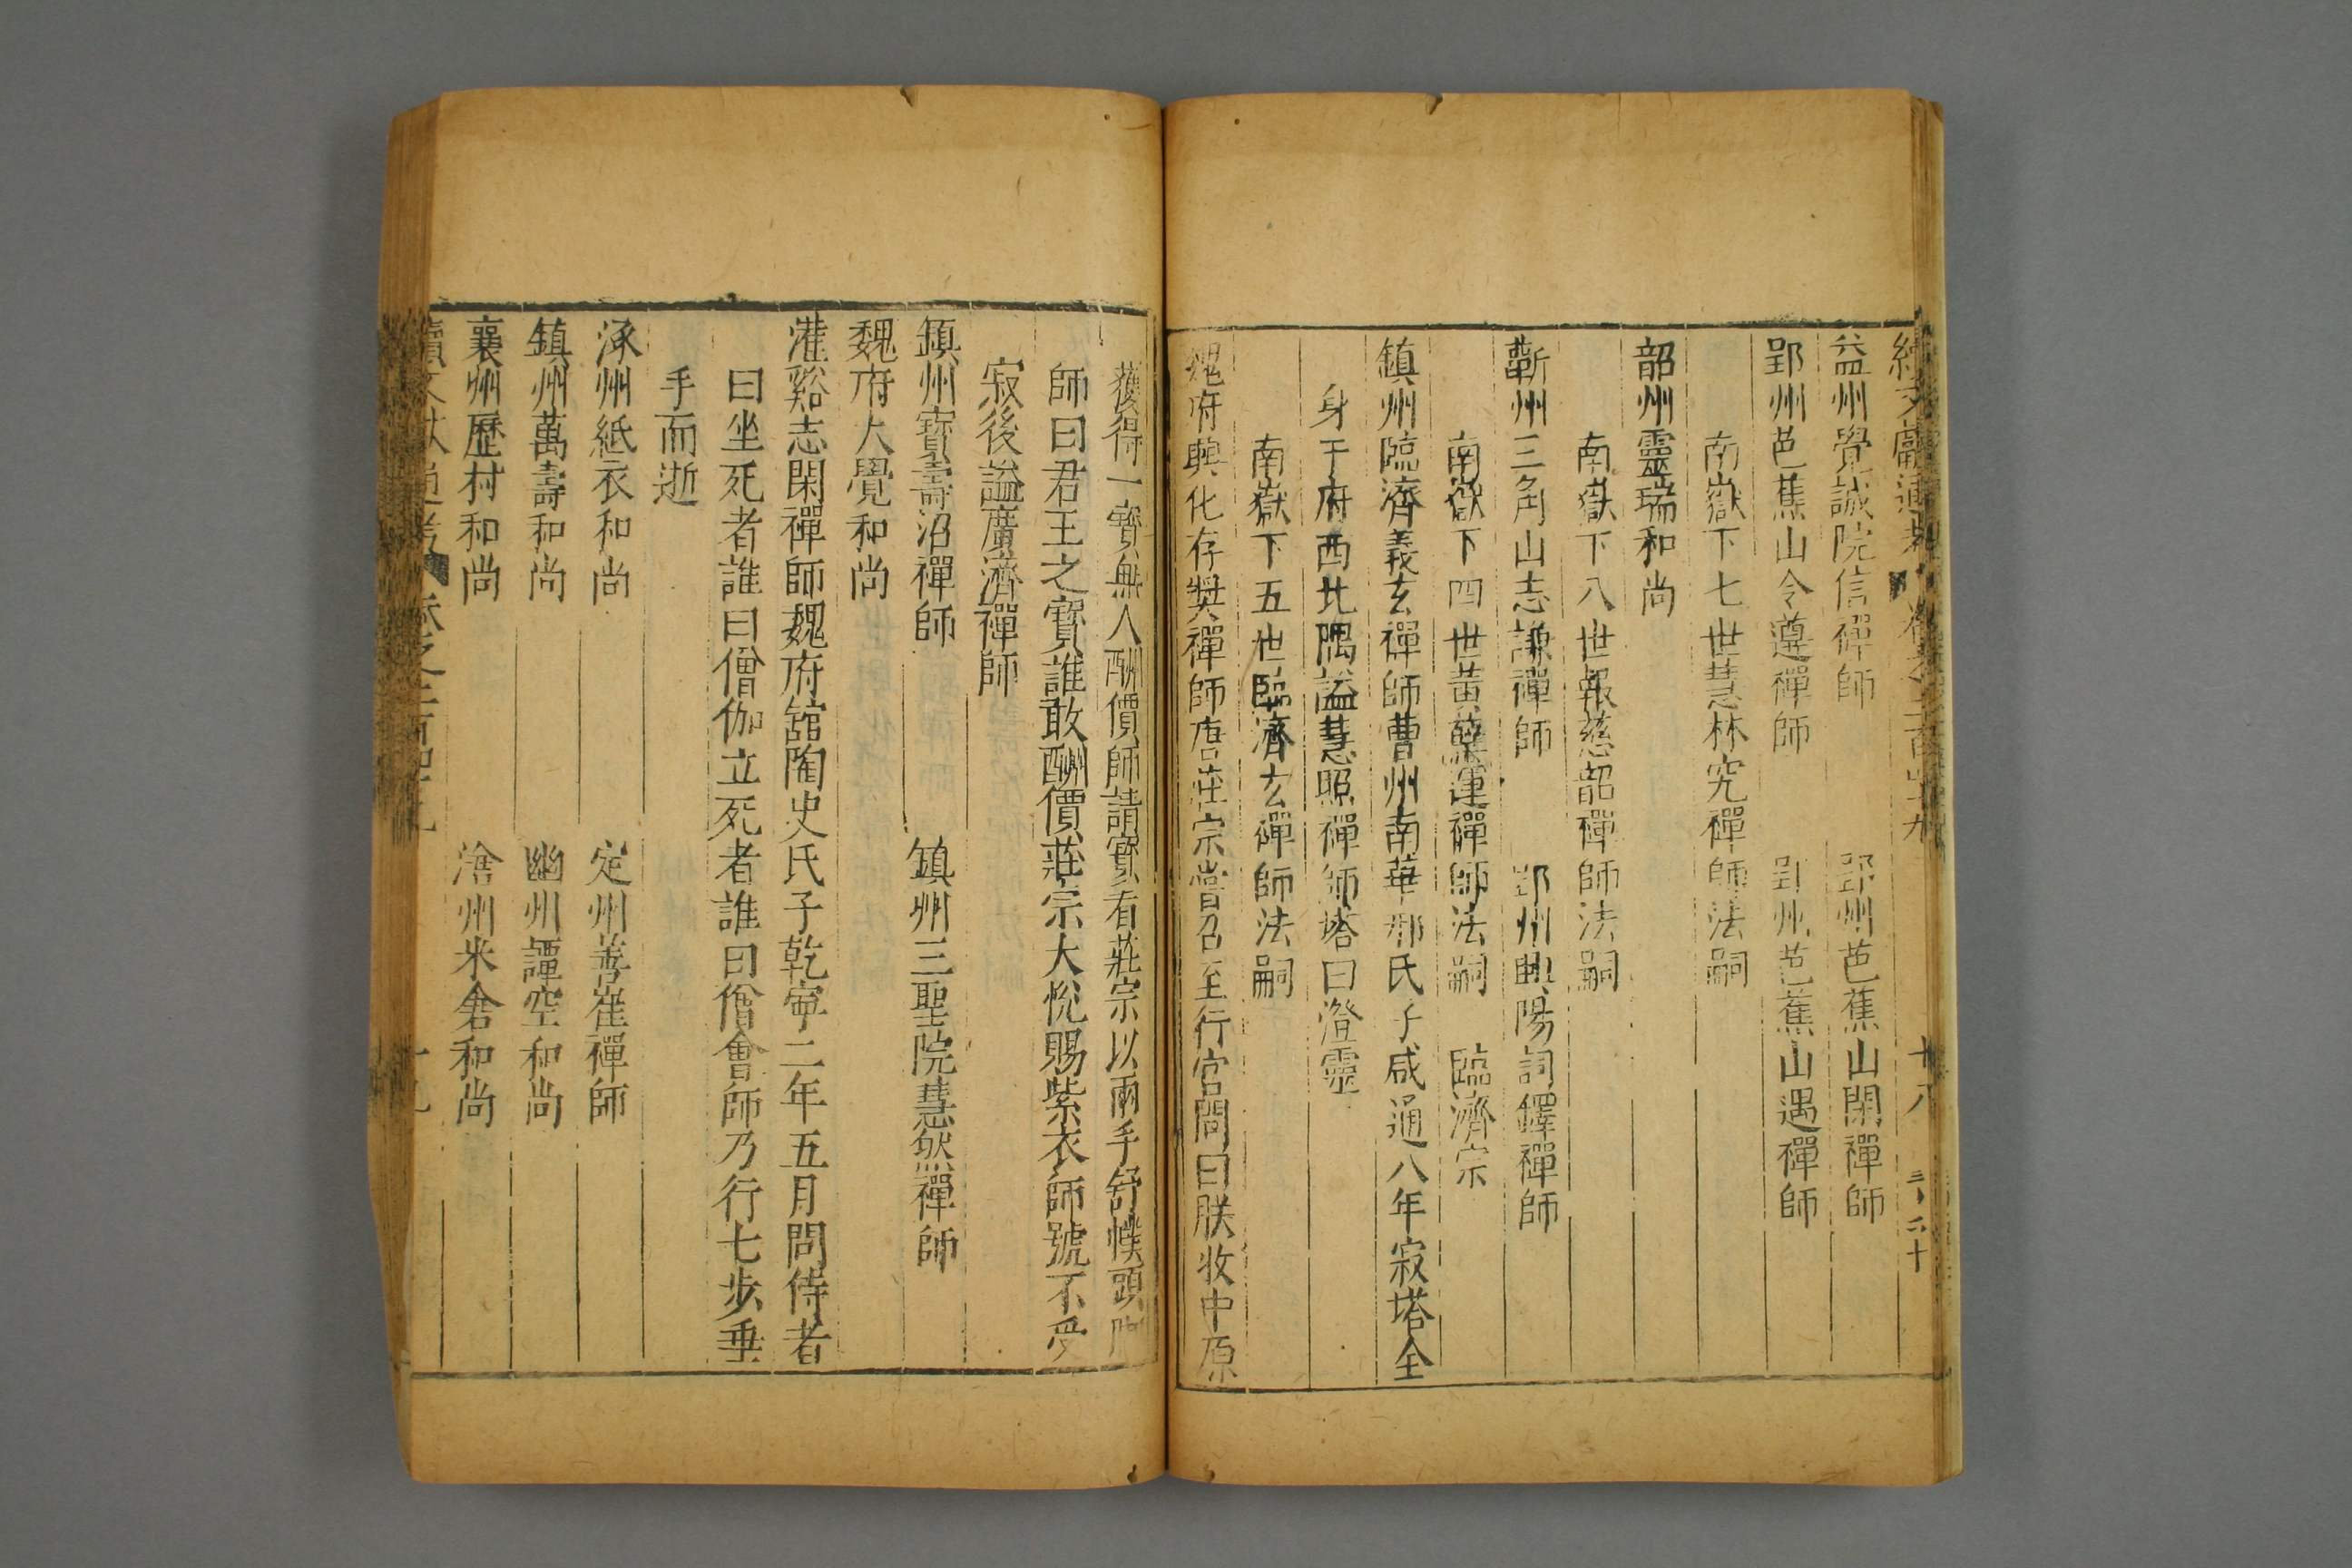 益州覺誠院信禪師 郢州芭蕉山閑禪師
郢州芭蕉山令遵禪師 郢州芭蕉山遇禪師
南嶽下七世慧林究禪師法嗣
韶州靈瑞和尚
南嶽下八世報慈韶禪師法嗣
蘄州三角山志謙禪師 郢州興陽詞鐸禪師
南嶽下四世黃蘗運禪師法嗣 臨濟宗
鎮州臨濟義玄禪師曹州南華邢氏子咸通八年寂塔全
身于府西北隅謚慧照禪師塔曰澄靈
南嶽下五世臨濟玄禪師法嗣
魏府興化存奬禪師唐莊宗嘗召至行宮問曰朕收中原
獲得一寶無人酬價師請寶看莊宗以兩手舒幞頭脚
師曰君王之寶誰敢酬價莊宗大悅賜紫衣師號不受
寂後謚廣濟禪師
鎮州寶壽沼禪師 鎮州三聖院慧然禪師
魏府大覺和尚
灌谿志閑禪師魏府舘陶史氏子乾寧二年五月問侍者
曰坐死者誰曰僧伽立死者誰曰僧會師乃行七步垂
手而逝
涿州紙衣和尚 定州善崔禪師
鎮州萬壽和尚 幽州譚空和尚
襄州歷村和尚 滄州米倉和尚